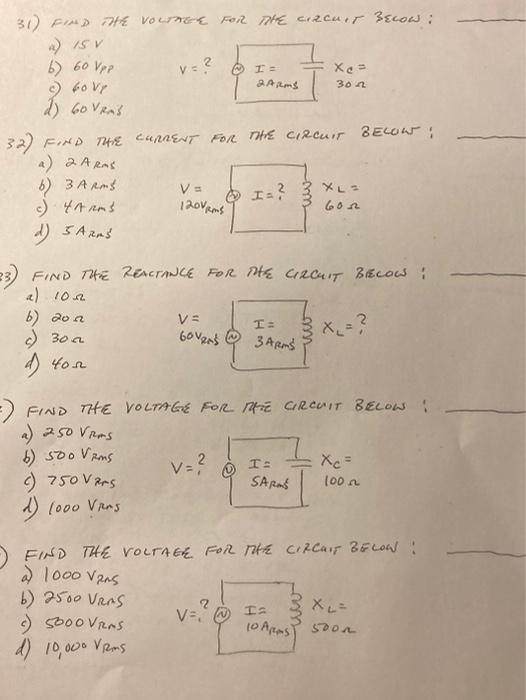 31) FIND THE VOLTAGE FOR THE CIRCUIT BELOW :
a) 15 V
b) 60 Vpp
c) 60 Vp
d) 60 VRMS
V = ?
I = 2 ARMS
XC = 30 Ω
32) FIND THE CURRENT FOR THE CIRCUIT BELOW :
a) 2 ARMS
b) 3 ARMS
c) 4 ARMS
d) 5 ARMS
V = 120VRMS
I = ?
XL = 60 Ω
33) FIND THE REACTANCE FOR THE CIRCUIT BELOW :
a) 10 Ω
b) 20 Ω
c) 30 Ω
d) 40 Ω
V = 60VRMS
I = 3 ARMS
XL = ?
) FIND THE VOLTAGE FOR THE CIRCUIT BELOW :
a) 250 VRMS
b) 500 VRMS
c) 750 VRMS
d) 1000 VRMS
V = ?
I = 5ARMS
XC = 100 Ω
) FIND THE VOLTAGE FOR THE CIRCUIT BELOW :
a) 1000 VRMS
b) 2500 VRMS
c) 5000 VRMS
d) 10,000 VRMS
V = ?
I = 10 ARMS
XL = 500 Ω